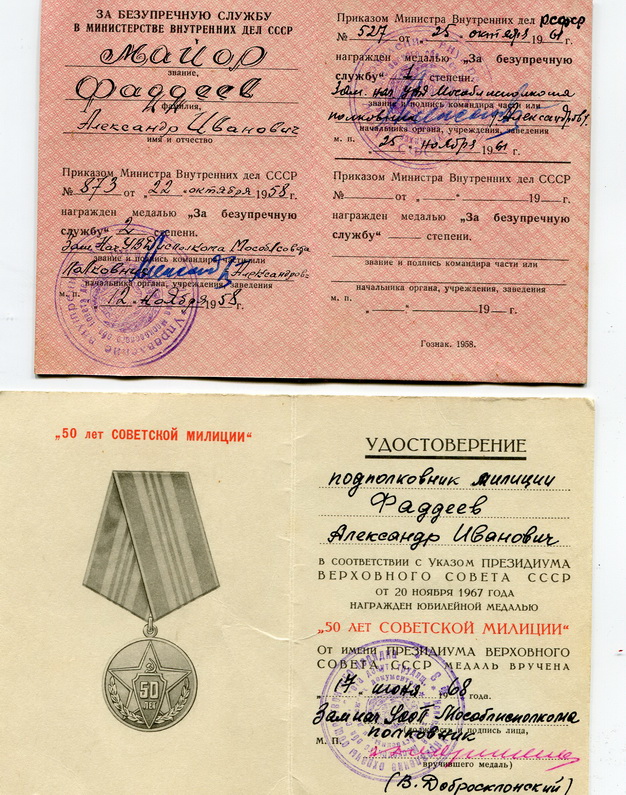 ЗА БЕЗУПРЕЧНУЮ СЛУЖБУ
В МИНИСТЕРСТВЕ ВНУТРЕННИХ ДЕЛ СССР
Майор
звание,
Фаддеев
фамилия,
Александр Иванович
имя и отчество
Приказом Министра Внутренних дел СССР
№ 873 от „22" октября 1958 г.
награжден медалью „За безупречную
службу" 2 степени.
Зам. Нач. УВД исполкома Мособлсовета
звание и подпись командира части или
Полковник Александров
начальника органа, учреждения, заведения
м. п. 12 ноября 1958 г.
Приказом Министра Внутренних дел РСФСР
№ 527 от „25" октября 1961 г.
награжден медалью „За безупречную
службу" 1 степени.
Зам. нач. Мособлисполкома
звание и подпись командира части или
полковник Александров
начальника органа, учреждения, заведения
м. п. „25" ноября 1961 г.
Приказом Министра Внутренних дел СССР
№ — от „ — " — 19 — г.
награжден медалью „За безупречную
службу" — степени.
звание и подпись командира части или
начальника органа, учреждения, заведения
м. п. „ — " — 19 — г.
Гознак. 1958.
„50 лет СОВЕТСКОЙ МИЛИЦИИ"
50
ЛЕТ
УДОСТОВЕРЕНИЕ
подполковник милиции
Фаддеев
Александр Иванович
В СООТВЕТСТВИИ С УКАЗОМ ПРЕЗИДИУМА
ВЕРХОВНОГО СОВЕТА СССР
ОТ 20 НОЯБРЯ 1967 ГОДА
НАГРАЖДЕН ЮБИЛЕЙНОЙ МЕДАЛЬЮ
„50 ЛЕТ СОВЕТСКОЙ МИЛИЦИИ"
ОТ ИМЕНИ ПРЕЗИДИУМА ВЕРХОВНОГО
СОВЕТА СССР МЕДАЛЬ ВРУЧЕНА
„17" июня 1968 года.
Зам нач УООП Мособлисполкома
полковник
подпись лица,
М. П.
вручившего медаль)
(В. Добросклонский)